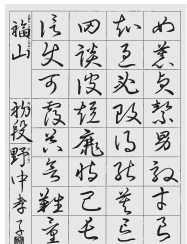 女慕貞絜男效才良
知過必改得能莫忘
罔談彼短靡恃己長
信使可覆器欲難量
福山 粉段 野中孝子